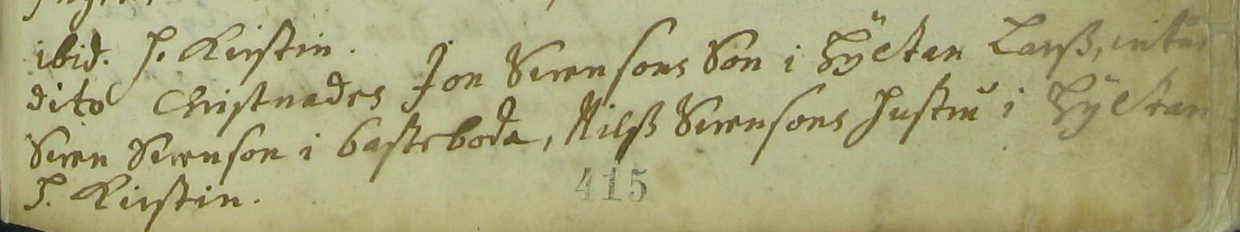 ibid. h. Kirstin.
dito Christnades Jon Swensons Son i Hÿltan Larß,
Swen Swenson i basteboda, Nilß Swensons hustru i Hÿltan
h. Kirstin.
415